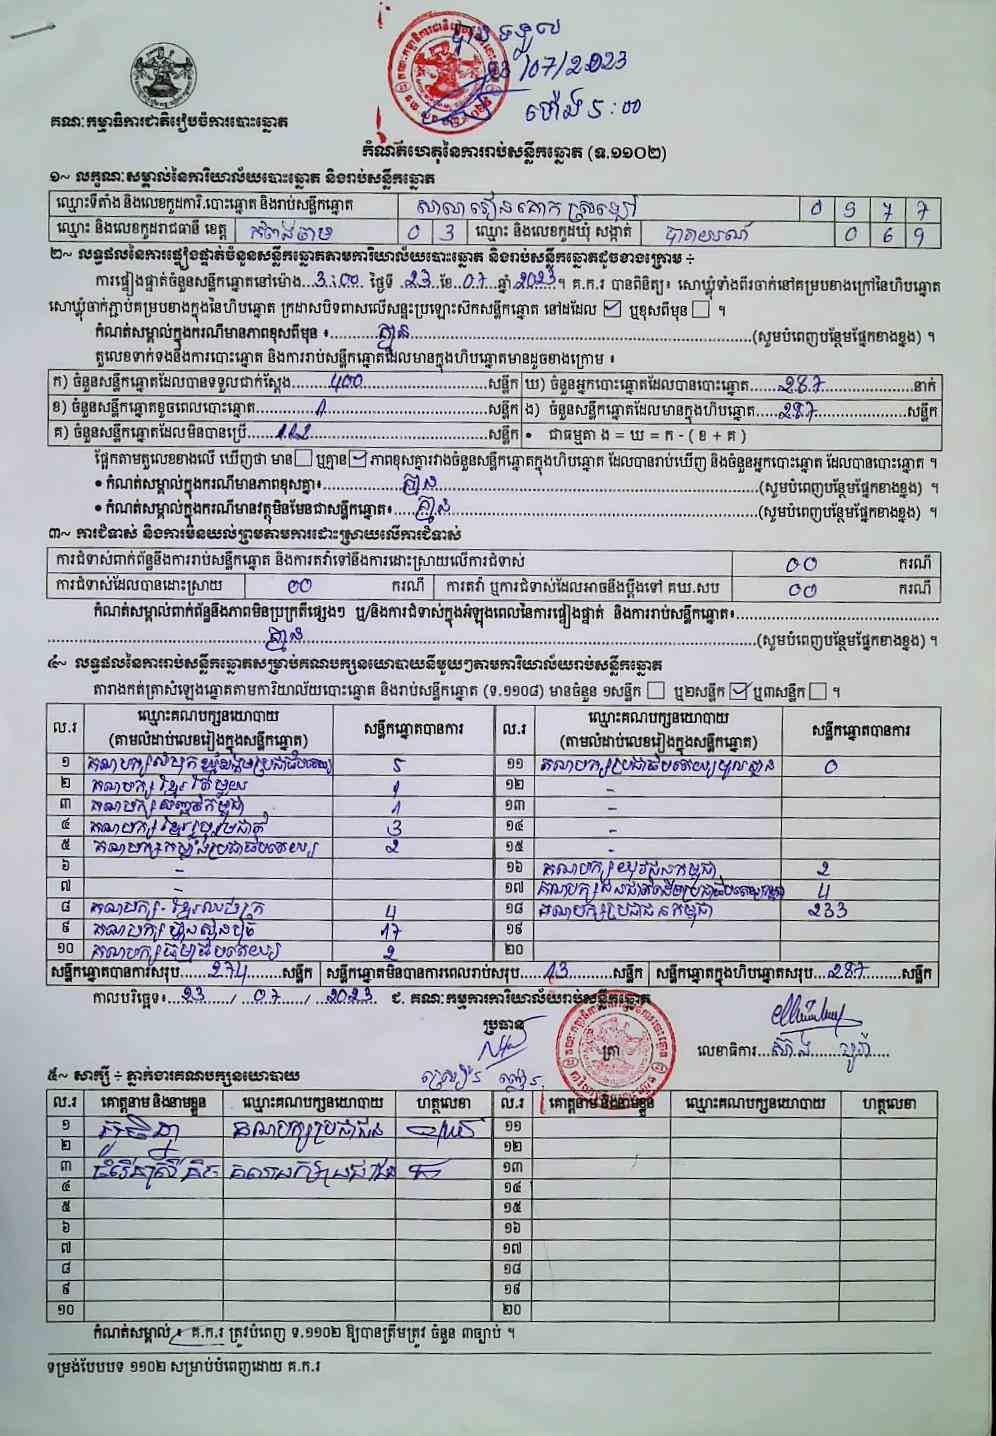 បានទទួល
23/07/2023
ម៉ោង 5:00
គណៈកម្មាធិការជាតិរៀបចំការបោះឆ្នោត
កំណត់ហេតុនៃការរាប់សន្លឹកឆ្នោត (ទ.១១០២)
១~ លក្ខណៈសម្គាល់នៃការិយាល័យបោះឆ្នោត និងរាប់សន្លឹកឆ្នោត
ឈ្មោះទីតាំង និងលេខកូដការិ.បោះឆ្នោត និងរាប់សន្លឹកឆ្នោត សាលារៀនគោក 0 9 7 7
ឈ្មោះ និងលេខកូដរាជធានី ខេត្ត កំពង់ចាម 0 3 ឈ្មោះ និងលេខកូដឃុំ សង្កាត់ បារាយណ៍ 0 6 9
២~ លទ្ធផលនៃការផ្ទៀងផ្ទាត់ចំនួនសន្លឹកឆ្នោតតាមការិយាល័យបោះឆ្នោត និងរាប់សន្លឹកឆ្នោតដូចខាងក្រោម ÷
ការផ្ទៀងផ្ទាត់ចំនួនសន្លឹកឆ្នោតនៅម៉ោង 3:00 ថ្ងៃទី 23 ខែ 07 ឆ្នាំ 2023។ គ.ក.រ បានពិនិត្យ៖ សោឃ្លុំទាំងពីរចាក់នៅគម្របខាងក្រៅនៃហិបឆ្នោត
សោឃ្លុំចាក់ភ្ជាប់គម្របខាងក្នុងនៃហិបឆ្នោត ក្រដាសបិទពាសលើសន្ទះប្រឡោះស៊កសន្លឹកឆ្នោត នៅដដែល ☑ ឬខុសពីមុន ☐ ។
កំណត់សម្គាល់ក្នុងករណីមានភាពខុសពីមុន ៖ គ្មាន (សូមបំពេញបន្ថែមផ្នែកខាងខ្នង) ។
តួលេខទាក់ទងនឹងការបោះឆ្នោត និងការរាប់សន្លឹកឆ្នោតដែលមានក្នុងហិបឆ្នោតមានដូចខាងក្រោម ៖
ក) ចំនួនសន្លឹកឆ្នោតដែលបានទទួលជាក់ស្តែង 400 សន្លឹក ឃ) ចំនួនអ្នកបោះឆ្នោតដែលបានបោះឆ្នោត 287 នាក់
ខ) ចំនួនសន្លឹកឆ្នោតខូចពេលបោះឆ្នោត 1 សន្លឹក ង) ចំនួនសន្លឹកឆ្នោតដែលមានក្នុងហិបឆ្នោត 287 សន្លឹក
គ) ចំនួនសន្លឹកឆ្នោតដែលមិនបានប្រើ 112 សន្លឹក • ជាធម្មតា ង = ឃ = ក - ( ខ + គ )
ផ្អែកតាមតួលេខខាងលើ ឃើញថា មាន ☐ ឬគ្មាន ☑ ភាពខុសគ្នារវាងចំនួនសន្លឹកឆ្នោតក្នុងហិបឆ្នោត ដែលបានរាប់ឃើញ និងចំនួនអ្នកបោះឆ្នោត ដែលបានបោះឆ្នោត ។
• កំណត់សម្គាល់ក្នុងករណីមានភាពខុសគ្នា៖ គ្មាន (សូមបំពេញបន្ថែមផ្នែកខាងខ្នង) ។
• កំណត់សម្គាល់ក្នុងករណីមានវត្ថុមិនមែនជាសន្លឹកឆ្នោត៖ គ្មាន (សូមបំពេញបន្ថែមផ្នែកខាងខ្នង) ។
៣~ ការជំទាស់ និងការមិនយល់ព្រមតាមការដោះស្រាយលើការជំទាស់
ការជំទាស់ពាក់ព័ន្ធនឹងការរាប់សន្លឹកឆ្នោត និងការតវ៉ាទៅនឹងការដោះស្រាយលើការជំទាស់ 00 ករណី
ការជំទាស់ដែលបានដោះស្រាយ 00 ករណី ការតវ៉ា ឬការជំទាស់ដែលអាចនឹងប្តឹងទៅ គឃ.សប 00 ករណី
កំណត់សម្គាល់ពាក់ព័ន្ធនឹងភាពមិនប្រក្រតីផ្សេងៗ ឬ/និងការជំទាស់ក្នុងអំឡុងពេលនៃការផ្ទៀងផ្ទាត់ និងការរាប់សន្លឹកឆ្នោត៖
គ្មាន (សូមបំពេញបន្ថែមផ្នែកខាងខ្នង) ។
៤~ លទ្ធផលនៃការរាប់សន្លឹកឆ្នោតសម្រាប់គណបក្សនយោបាយនីមួយៗតាមការិយាល័យរាប់សន្លឹកឆ្នោត
តារាងកត់ត្រាសំឡេងឆ្នោតតាមការិយាល័យបោះឆ្នោត និងរាប់សន្លឹកឆ្នោត (ទ.១១០៨) មានចំនួន ១សន្លឹក ☐ ឬ២សន្លឹក ☑ ឬ៣សន្លឹក ☐ ។
ល.រ ឈ្មោះគណបក្សនយោបាយ (តាមលំដាប់លេខរៀងក្នុងសន្លឹកឆ្នោត) សន្លឹកឆ្នោតបានការ ល.រ ឈ្មោះគណបក្សនយោបាយ (តាមលំដាប់លេខរៀងក្នុងសន្លឹកឆ្នោត) សន្លឹកឆ្នោតបានការ
១ គណបក្សសំបុកឃ្មុំសង្គមប្រជាធិបតេយ្យ 5 ១១ គណបក្សប្រជាធិបតេយ្យមូលដ្ឋាន 0
២ គណបក្សខ្មែរតែមួយ 1 ១២ -
៣ គណបក្សសញ្ជាតិកម្ពុជា 1 ១៣ -
៤ គណបក្សខ្មែររួបរួមជាតិ 3 ១៤ -
៥ គណបក្សកម្លាំងប្រជាធិបតេយ្យ 2 ១៥ -
៦ - ១៦ គណបក្សយុវជនកម្ពុជា 2
៧ - ១៧ គណបក្សជនជាតិដើមប្រជាធិបតេយ្យកម្ពុជា 4
៨ គណបក្សខ្មែរឈប់ក្រ 4 ១៨ គណបក្សប្រជាជនកម្ពុជា 233
៩ គណបក្សហ្វ៊ុនស៊ិនប៉ិច 17 ១៩
១០ គណបក្សធម្មាធិបតេយ្យ 2 ២០
សន្លឹកឆ្នោតបានការសរុប 274 សន្លឹក សន្លឹកឆ្នោតមិនបានការពេលរាប់សរុប 13 សន្លឹក សន្លឹកឆ្នោតក្នុងហិបឆ្នោតសរុប 287 សន្លឹក
កាលបរិច្ឆេទ៖ 23 / 07 / 2023 ជ. គណៈកម្មការការិយាល័យរាប់សន្លឹកឆ្នោត
ប្រធាន
ត្រា លេខាធិការ
៥~ សាក្សី ÷ ភ្នាក់ងារគណបក្សនយោបាយ
ល.រ គោត្តនាម និងនាមខ្លួន ឈ្មោះគណបក្សនយោបាយ ហត្ថលេខា ល.រ គោត្តនាម និងនាមខ្លួន ឈ្មោះគណបក្សនយោបាយ ហត្ថលេខា
១ គណបក្សប្រជាជន ១១
២ ១២
៣ ១៣
៤ ១៤
៥ ១៥
៦ ១៦
៧ ១៧
៨ ១៨
៩ ១៩
១០ ២០
កំណត់សម្គាល់ ៖ គ.ក.រ ត្រូវបំពេញ ទ.១១០២ ឱ្យបានត្រឹមត្រូវ ចំនួន ៣ច្បាប់ ។
ទម្រង់បែបបទ ១១០២ សម្រាប់បំពេញដោយ គ.ក.រ